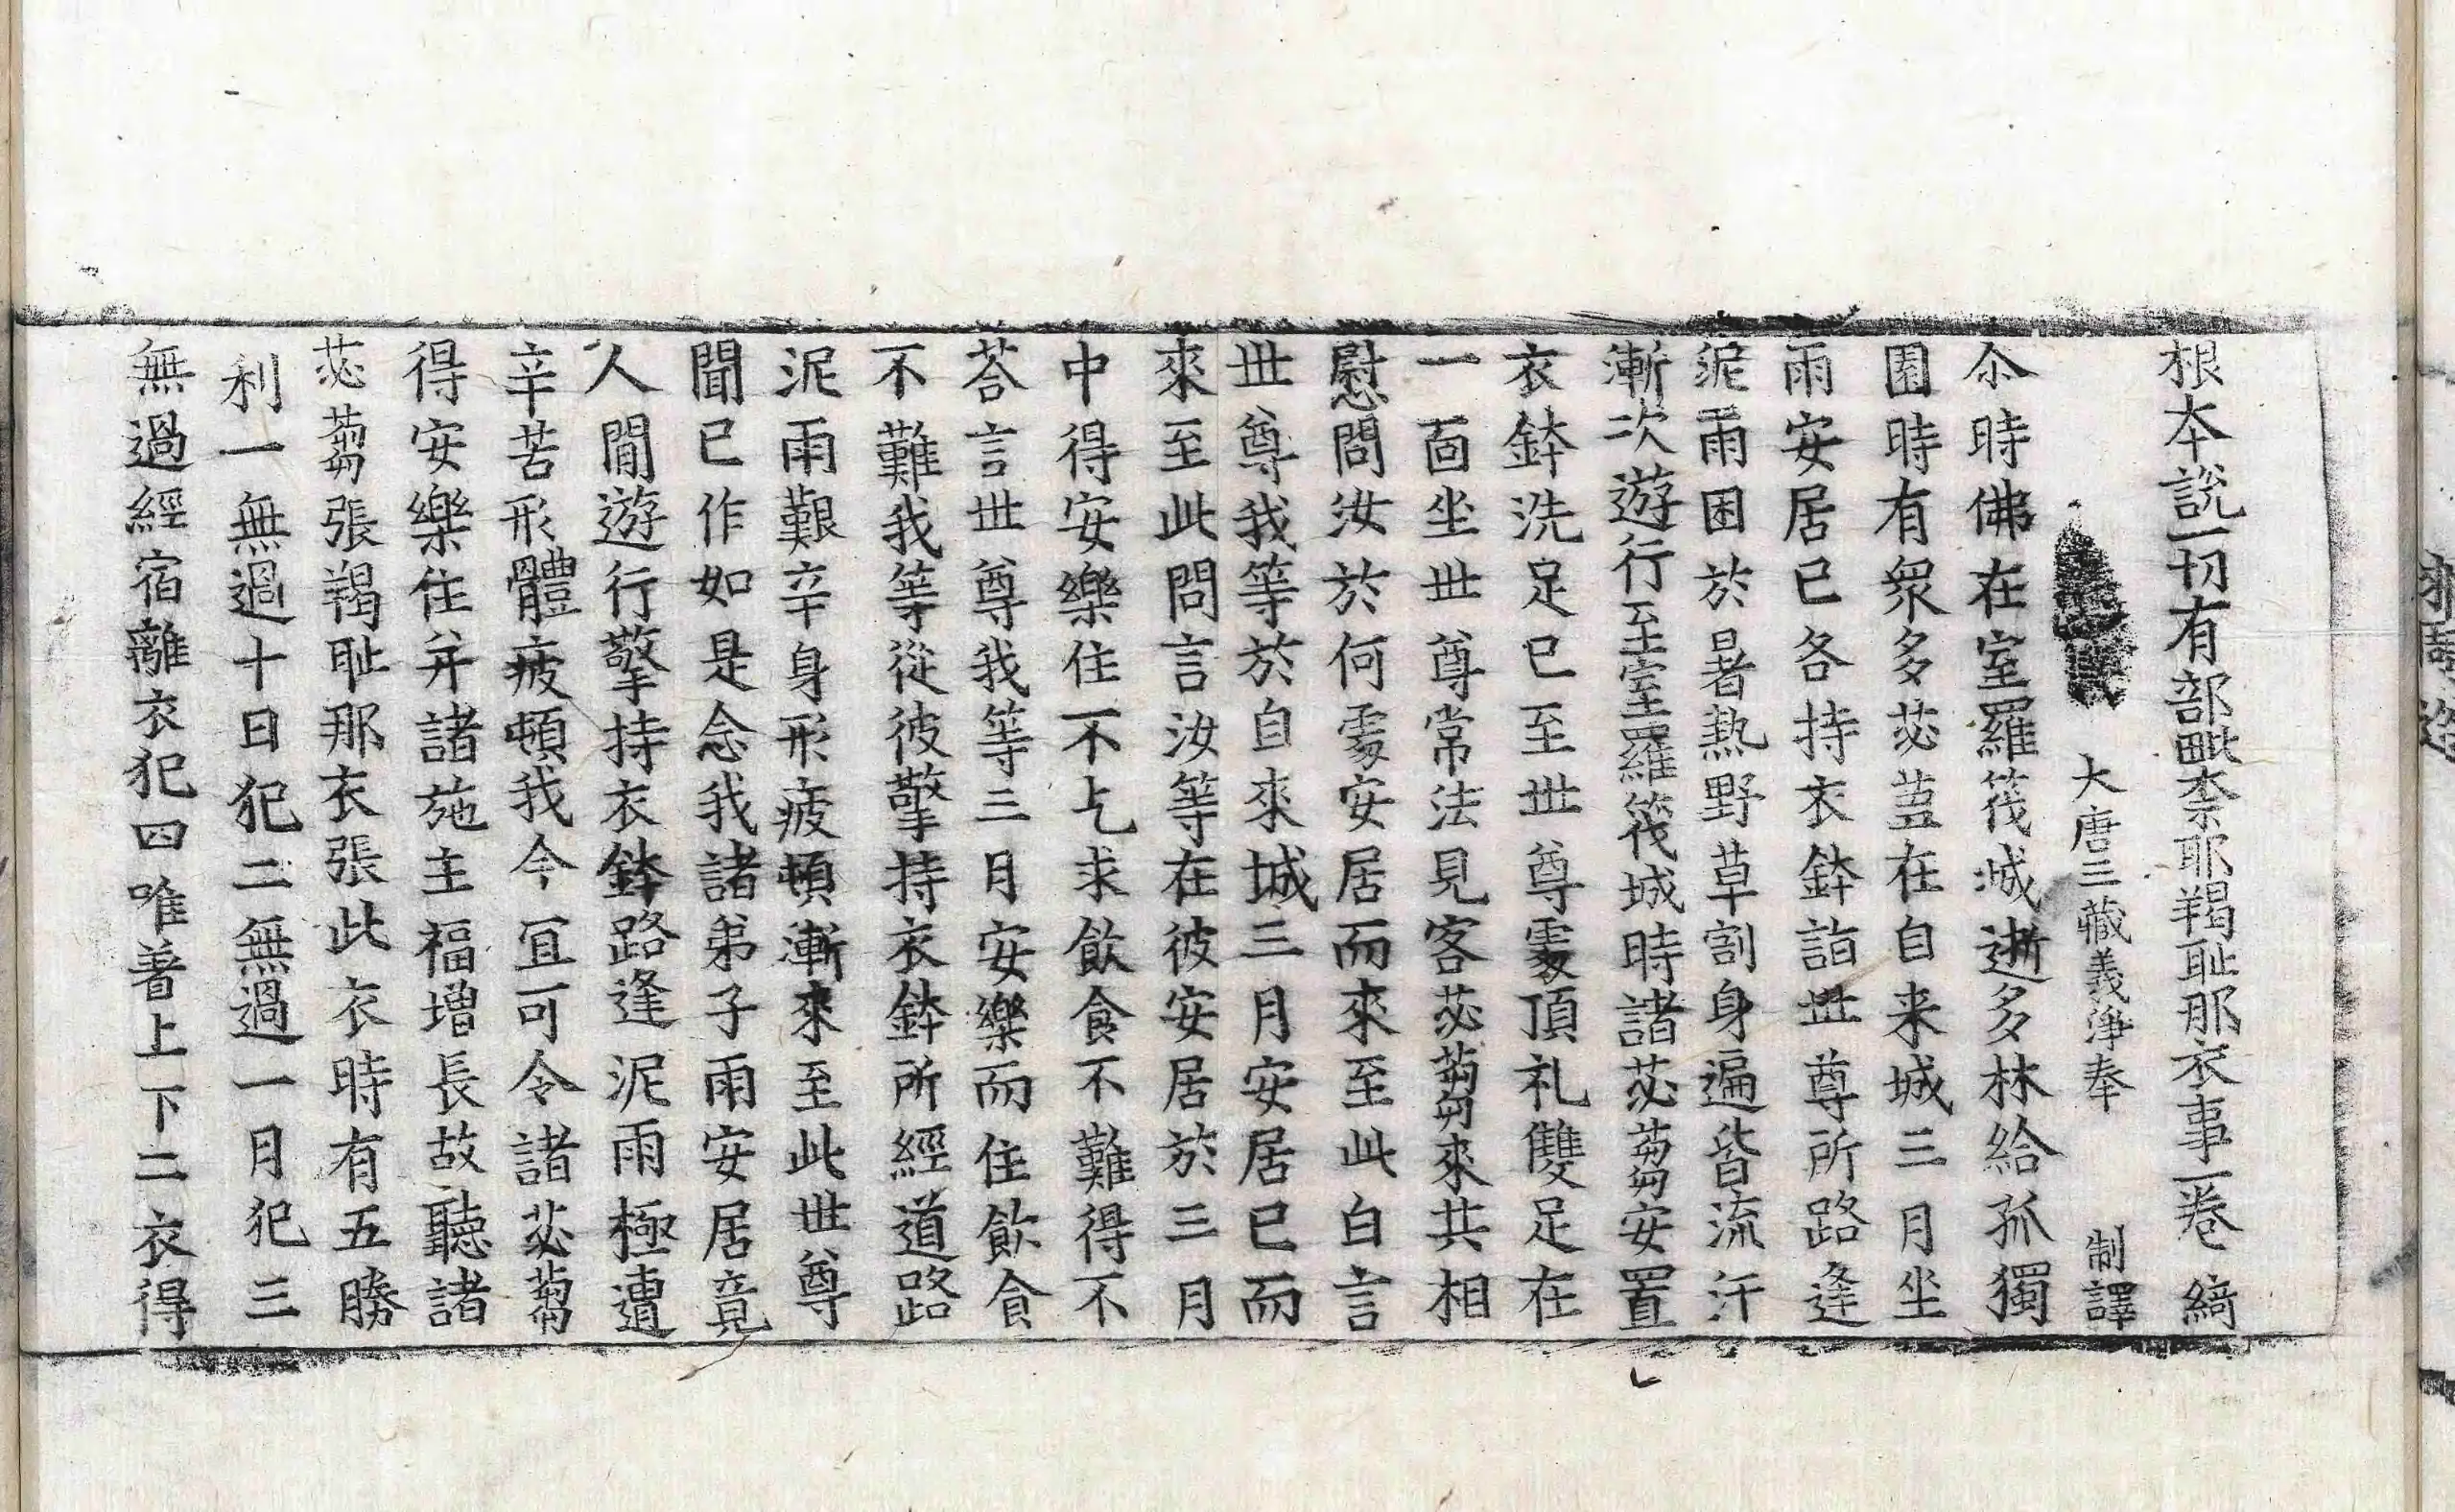 根本說一切有部毗柰耶羯耻那衣事一卷 綺
大唐三藏義淨奉 制譯
尒時佛在室羅筏城逝多林給孤獨
園時有衆多苾蒭在自来城三月坐
雨安居已各持衣鉢詣世尊所路逢
泥雨困於暑熱野草割身遍皆流汗
漸次遊行至室羅筏城時諸苾蒭安置
衣鉢洗足已至世尊處頂礼雙足在
一面坐世尊常法見客苾蒭來共相
慰問汝於何處安居而來至此白言
世尊我等於自來城三月安居已而
來至此問言汝等在彼安居於三月
中得安樂住不乞求飲食不難得不
荅言世尊我等三月安樂而住飲食
不難我等從彼擎持衣鉢所經道路
泥雨艱辛身形疲頓漸來至此世尊
聞已作如是念我諸弟子雨安居竟
人間遊行擎持衣鉢路逢泥雨極遭
辛苦形體疲頓我今宜可令諸苾蒭
得安樂住并諸施主福增長故聽諸
苾蒭張羯耻那衣張此衣時有五勝
利一無過十日犯二無過一月犯三
無過經宿離衣犯四唯著上下二衣得